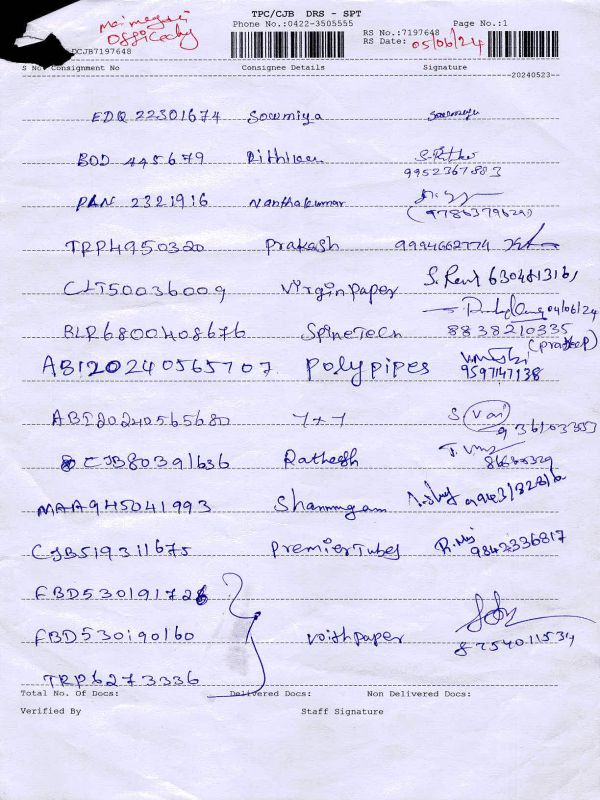 TPC/CJB DRS - SPT
Phone No.:0422-3505555
RS No.:7197648
Page No.:1
RS Date: 05/06/24
DCJB7197648
S No. Consignment No Consignee Details Signature
--20240523--
EDQ 22301674 Sowmiya Sowmiya
BOD 445679 Rithik
9952367883
PAN 2321916 Nanthakumar
(9786379629)
TRP4950320 Prakash 9994662774
CJT50036009 Virgin Paper S. Ravi 630481316)
04/06/24
BLR6800408676 SpineTech 8838210335
(Pradeep)
ABI20240565707 Polypipes
9597147138
ABI20240565680 7+7 S. Vai
936103353
CJB80391636 Rathesh
MAA945041993 Shanmugam
CJB519311675 Premier Tubes 9842336817
FBD530191728
FBD530190160 Voith paper 8754011534
TRP6273336
Total No. Of Docs: Delivered Docs: Non Delivered Docs:
Verified By Staff Signature